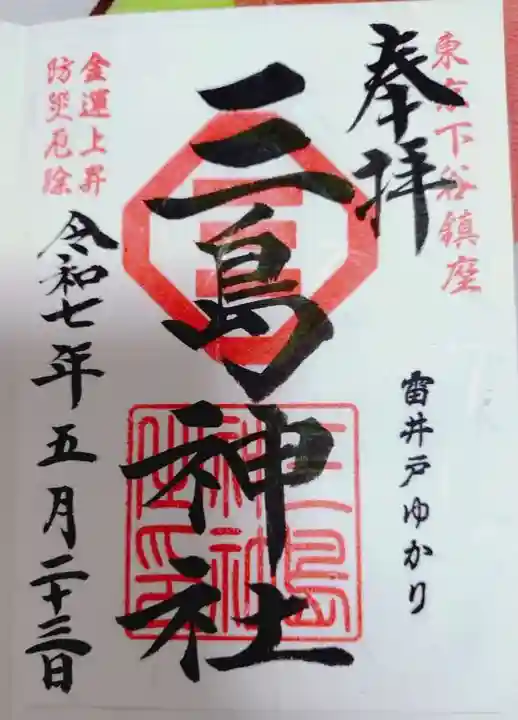 東京下谷鎮座
奉拝
雷井戸ゆかり
三島神社
三嶋神社之印
金運上昇
防災厄除
令和七年五月二十三日